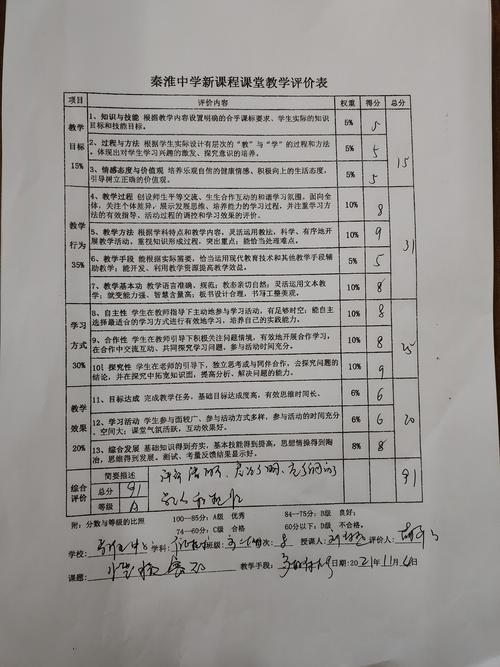 秦淮中学新课程课堂教学评价表
项目 评价内容 权重 得分 总分
教学目标 15%
1、知识与技能 根据教学内容设置明确的合乎课标要求、学生实际的知识
目标和技能目标。 5% 5
2、过程与方法 根据学生实际设计有层次的“教”与“学”的过程和方法
。体现出对学生学习兴趣的激发、探究意识的培养。 5% 5
3、情感态度与价值观 培养乐观自信的健康情感、积极向上的生活态度,
引导树立正确的价值观。 5% 5
15
教学行为 35%
4、教学过程 创设师生平等交流、生生合作互动的和谐学习氛围。面向全
体,关注个体差异,展示发展思维、培养能力的学习过程,并注重学习方
法的有效指导、活动过程的调控和学习效果的评价。 10% 8
5、教学方法 根据学科特点和教学内容,灵活运用教法,科学、有序地开
展教学活动,重视知识形成过程,突出重点;能恰当处理难点。 10% 9
6、教学手段 能根据实际需要,恰当运用现代教育技术和其他教学手段辅
助教学;能开发、利用教学资源提高教学效益。 5% 5
7、教学基本功 教学语言准确、规范;教态亲切自然;灵活运用文本教
学;应变能力强、智慧含量高;板书设计合理、书写工整美观。 10% 8
31
学习方式 30%
8、自主性 学生在教师指导下主动地参与学习活动,有足够时空;能自主
选择最适合的学习方式进行有效地学习,培养自己的实践能力。 10% 8
9、合作性 学生在教师引导下积极关注问题情境,有效地开展合作学习,
在合作中交流互动、共同探究学习问题,参与活动时间充分。 10% 8
10、探究性 学生在老师的引导下,独立思考或与同伴合作,去探究问题的
结论,并在探究中拓宽知识面,提高分析、解决问题的能力。 10% 9
25
教学效果 20%
11、目标达成 完成教学任务,基础目标达成度高,有效思维时间长。 6% 6
12、学习活动 学生参与面较广、参与活动方式多样,参与活动的时间充分
、空间大;课堂气氛活跃,互动效果好。 6% 6
13、综合发展 基础知识得到夯实,基本技能得到提高,思想情操得到陶
冶,思维得到发展。测试、考量反馈结果显示好。 8% 8
20
综合评价 简要描述
总分 91
等级 A
91
附:分数与等级的比照 100—85分:A级 优秀 84—75分:B级 良好:
74—60分:C级 合格 60分以下:D级 不合格。
学校: 学科: 班级: 班次: 授课人: 评价人:
课题: 教学手段: 日期:2021年11月4日